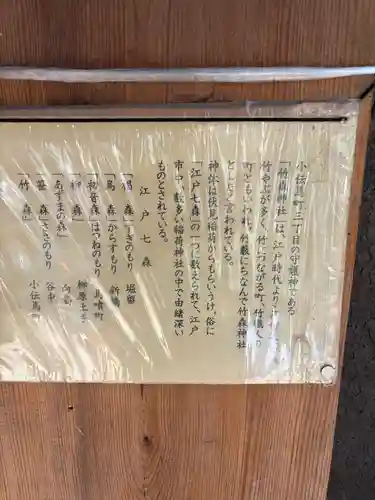 小伝馬町三丁目の守護神である
「竹森神社」は、江戸時代より
竹やぶが多く、竹につながる町、竹職人の
町ともいわれ、竹藪にちなんで竹森神社
と 言われている。
神体は伏見稲荷からもらいうけ、俗に
「江戸七森」の一つに数えられて、江戸
市中に数多い稲荷神社の中で由緒深い
ものとされている。
江戸七森
「椙森」すぎのもり 堀留
「烏森」からすもり 新橋
「初音森」はつねのもり 馬喰町
「柳森」 神田
「あずまの森」 向島
「笹森」ささのもり 谷中
「竹森」 小伝馬